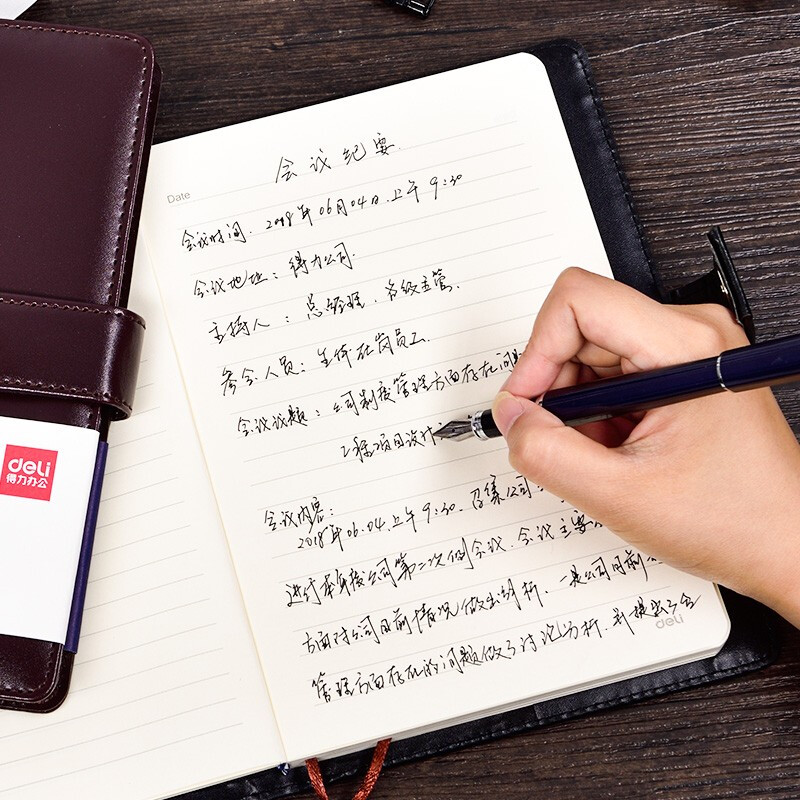 会议纪要
Date
会议时间：2018年06月04日.上午9:30
会议地址：得力公司.
主持人：总经理.各级主管.
参会人员：全体在岗员工.
会议议题：公司制度管理方面存在问题
工程项目设计
会议内容：
2018年06.04.上午9:30.召集公司
进行本年度公司第二次例会议.会议主要
方面对公司目前情况做出剖析.一是公司目前
管理方面存在的问题做了讨论分析.并提出了会
deli
deli
得力办公